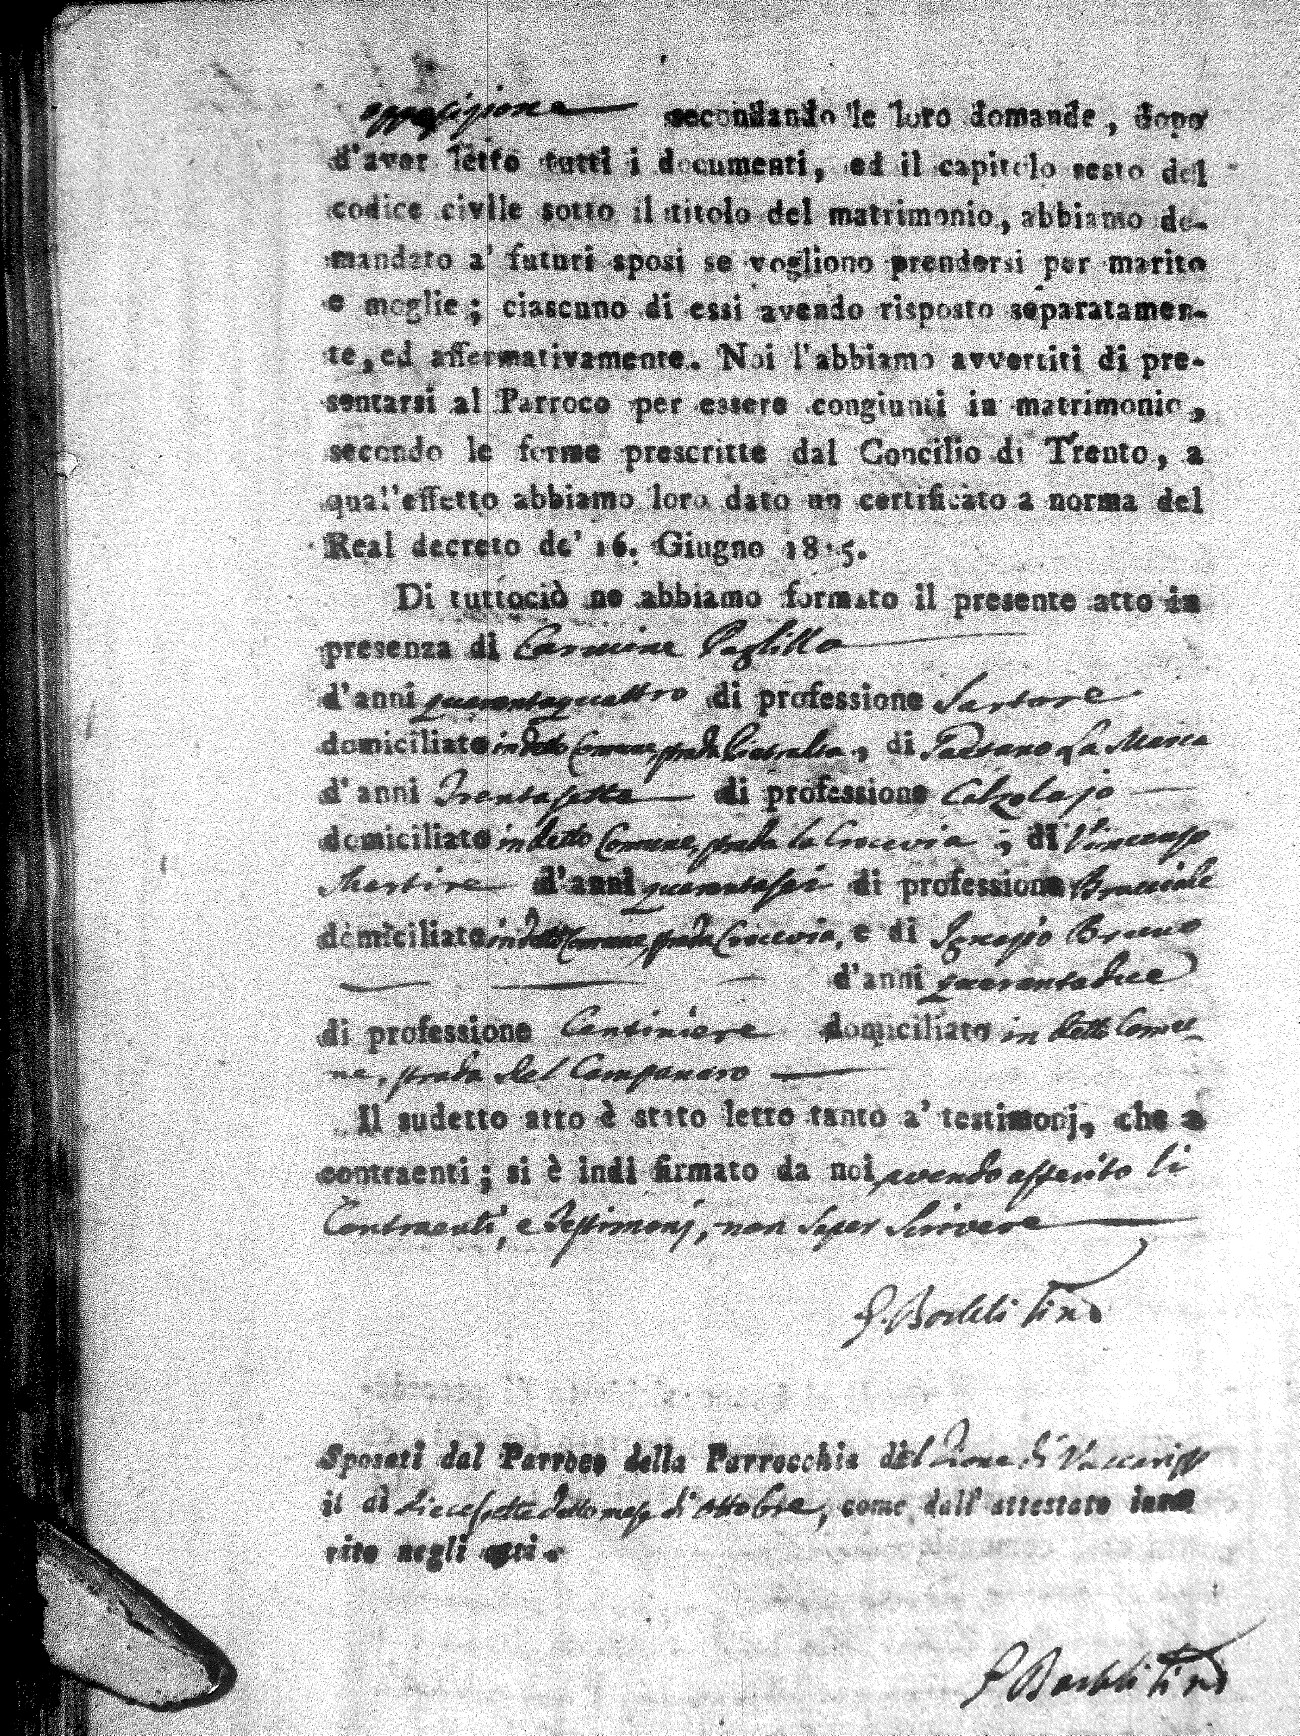 opposizione secondando le loro domande, dopo
d'aver letto tutti i documenti, ed il capitolo sesto del
codice civile sotto il titolo del matrimonio, abbiamo do-
mandato a' futuri sposi se vogliono prendersi per marito
e moglie; ciascuno di essi avendo risposto separatamen-
te, ed affermativamente. Noi l'abbiamo avvertiti di pre-
sentarsi al Parroco per essere congiunti in matrimonio,
secondo le forme prescritte dal Concilio di Trento, a
qual'effetto abbiamo loro dato un certificato a norma del
Real decreto de' 16. Giugno 1815.
Di tuttociò ne abbiamo formato il presente atto in
presenza di Carmine
d'anni quarantaquattro di professione Sartore
domiciliato in detto Comune, strada, di Gaetano La Marca
d'anni Trentasette di professione Calzolajo
domiciliato in detto Comune, strada la Croccvia; di Vincenzo
Martire d'anni quarantasei di professione Bracciale
domiciliato in detto Comune, strada Croccvia, e di Ignazio Bruno
d'anni quarantadue
di professione Centiniere domiciliato in detto Comu-
ne, strada del Campanaro
Il sudetto atto è stato letto tanto a' testimonj, che a
contraenti; si è indi firmato da noi avendo asserito li
Contraenti, e Testimonj, non saper Scrivere
Sposati dal Parroco della Parrocchia del
il dì diecesette detto mese di Ottobre, come dall'attestato inse
rito negli atti.